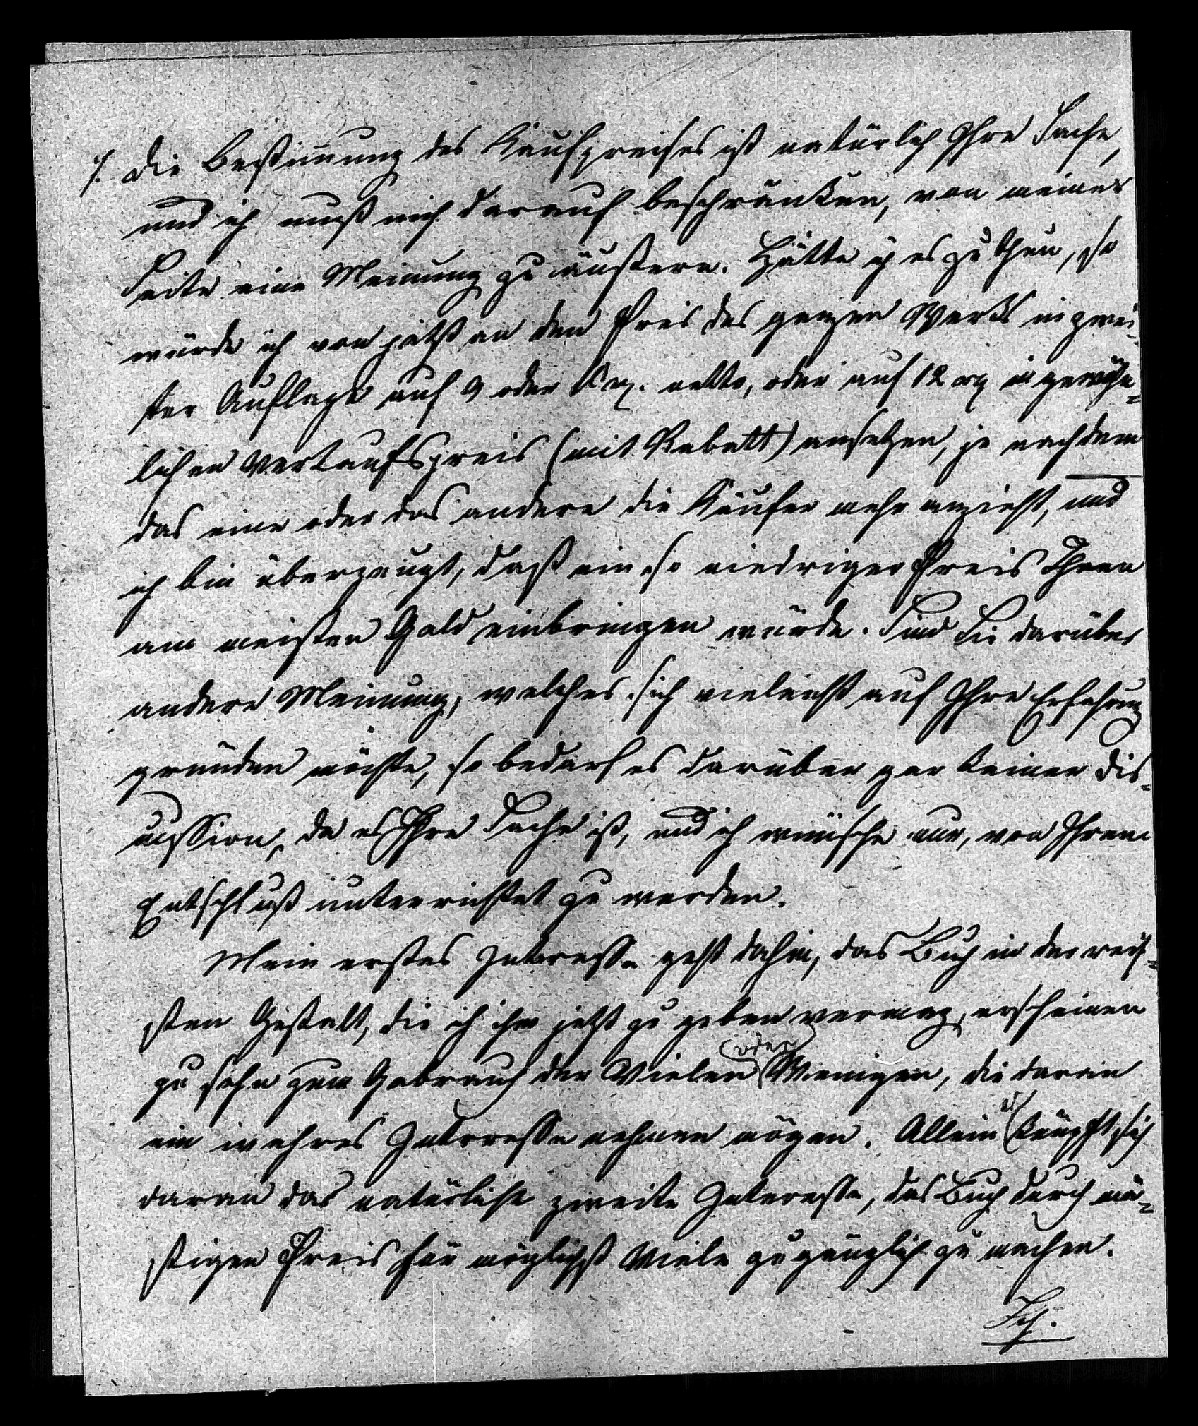 7. Die Bestimmung des Kaufpreises ist natürlich Ihre Sache,
und ich muß mich darauf beschränken, von meiner
Seite eine Meinung zu äußern. Hätte ich es zu thun, so
würde ich von jetzt an den Preis des ganzen Werks in zwei-
ter Auflage auf 9 oder netto, oder auf 12 rg
lichen Verkaufspreis (mit Rabatt) ansetzen, je nachdem
das eine oder das andere die Käufer mehr anzieht, und
ich bin überzeugt, daß ein so niedriger Preis Ihnen
am meisten Geld einbringen würde. Sind Sie darüber
andere Meinung, welches sich vieleicht auf Ihre Erfahrung
gründen möchte, so bedarf es darüber gar keiner Dis-
cussion, da es Ihre Sache ist, und ich wünsche nur, von Ihrem
Entschluß unterrichtet zu werden.
Mein erstes Interesse geht dahin, das Buch in der reif-
sten Gestalt, die ich ihm jetzt zu geben vermag, erscheinen
zu sehn zum Gebrauch der Vielen oder Wenigen, die daran
ein wahres Interesse nehmen mögen. Allein es knüpft sich
daran das natürliche zweite Interesse, das Buch durch mä-
ßigen Preis für möglichst Viele zugänglich zu machen.
Sch.